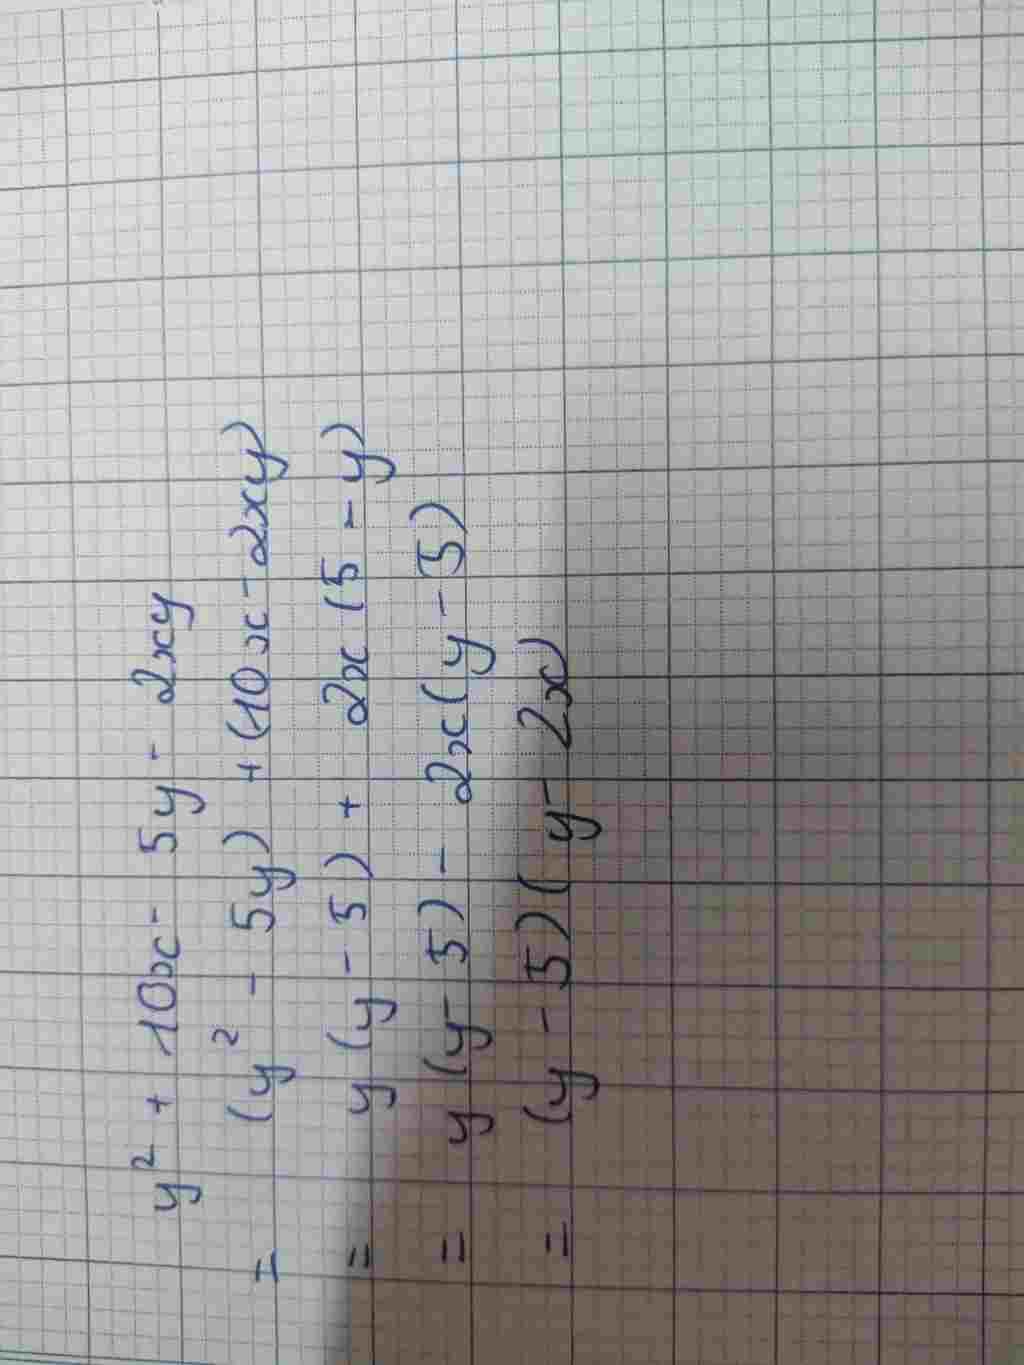 y² + 10x - 5y - 2xy
= (y² - 5y) + (10x - 2xy)
= y (y - 5) + 2x (5 - y)
= y (y - 5) - 2x (y - 5)
= (y - 5) (y - 2x)